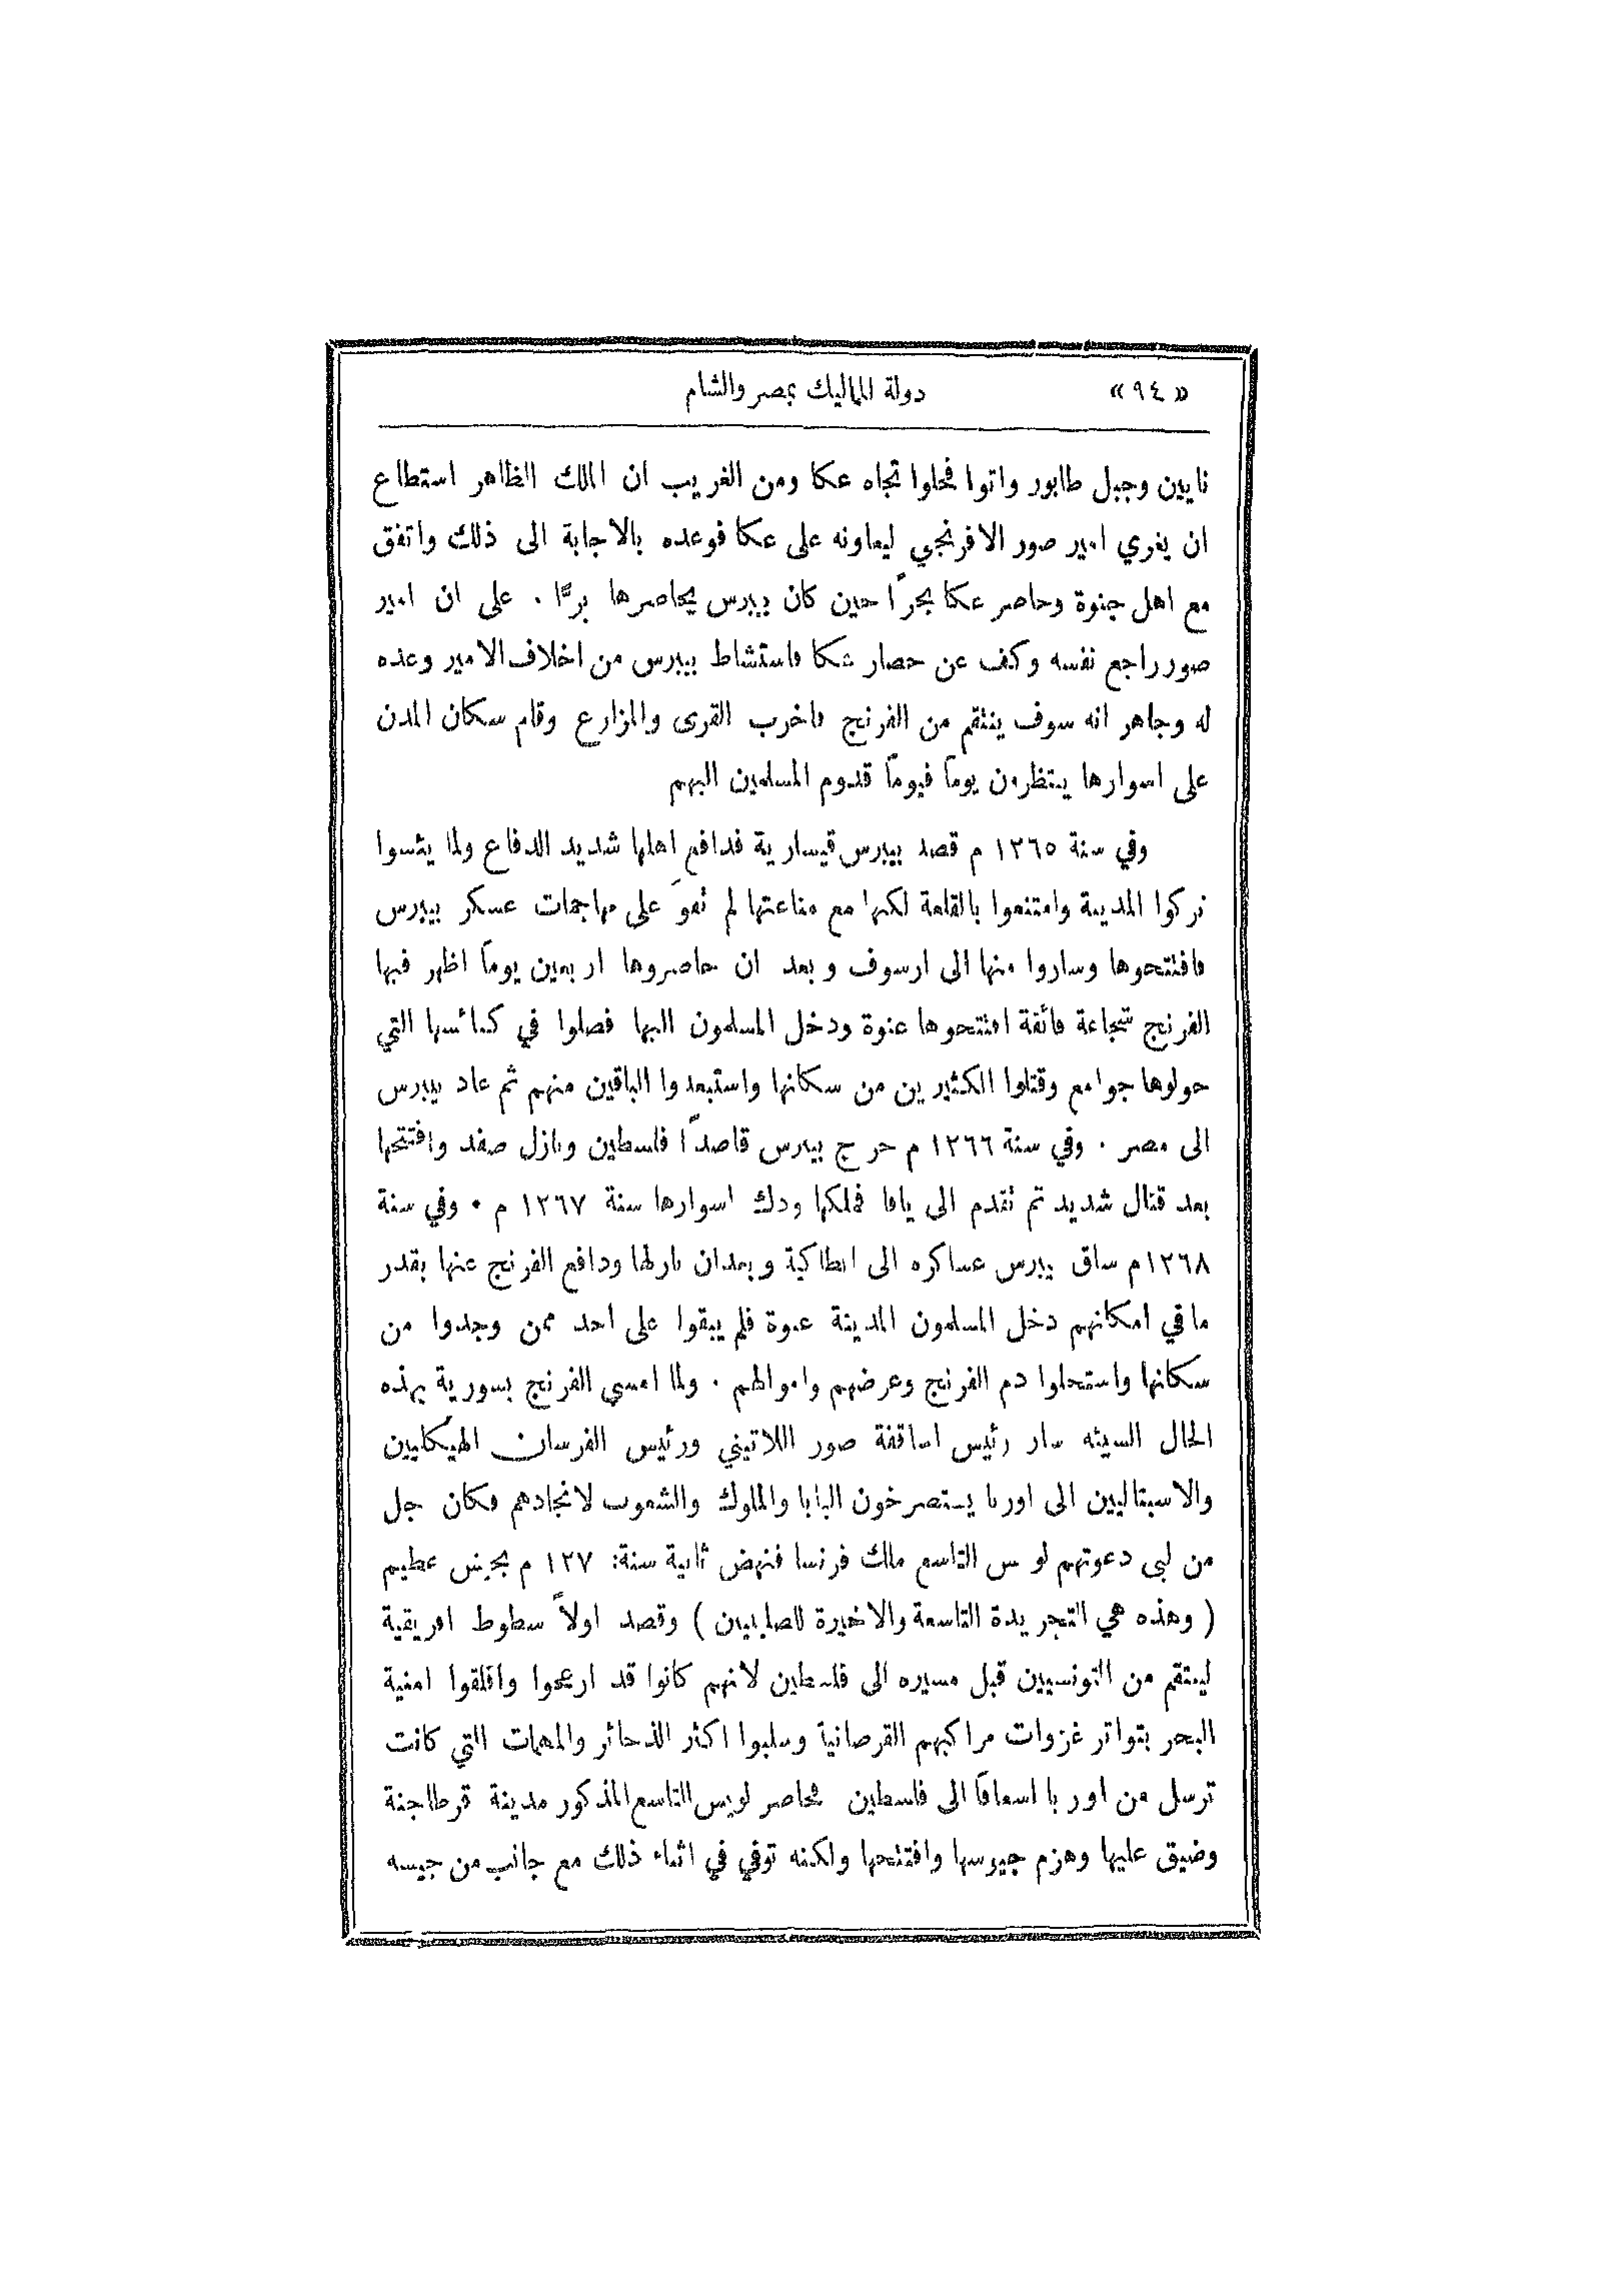 «٩٤» دولة المماليك بمصر والشام
نايين وجبل طابور واتوا فحلوا تجاه عكا ومن الغريب ان الملك الظاهر استطاع
ان يغري امير صور الافرنجي ليعاونه على عكا فوعده بالاجابة الى ذلك واتفق
مع اهل جنوة وحاصر عكا بحرًا حين كان بيبرس يحاصرها برًّا . على ان امير
صور راجع نفسه وكف عن حصار عكا فاستشاط بيبرس من اخلاف الامير وعده
له وجاهر انه سوف ينتقم من الفرنج فاخرب القرى والمزارع وقام سكان المدن
على اسوارها ينتظرون يوماً فيوماً قدوم المسلمين اليهم
وفي سنة ١٢٦٥ م قصد بيبرس قيسارية فدافع اهلها شديد الدفاع ولما يئسوا
تركوا المدينة وامتنعوا بالقلعة لكنها مع مناعتها لم تقوَ على مهاجمات عسكر بيبرس
فافتتحوها وساروا منها الى ارسوف وبعد ان حاصروها اربعين يوماً اظهر فيها
الفرنج شجاعة فائقة افتتحوها عنوة ودخل المسلمون اليها فصلوا في كنائسها التي
حولوها جوامع وقتلوا الكثيرين من سكانها واستبعدوا الباقين منهم ثم عاد بيبرس
الى مصر . وفي سنة ١٢٦٦ م خرج بيبرس قاصدًا فلسطين ونازل صفد وافتتحها
بعد قتال شديد ثم تقدم الى يافا فملكها ودك اسوارها سنة ١٢٦٧ م . وفي سنة
١٢٦٨ م ساق بيبرس عساكره الى انطاكية وبعد ان نازلها ودافع الفرنج عنها بقدر
ما في امكانهم دخل المسلمون المدينة عنوة فلم يبقوا على احد ممن وجدوا من
سكانها واستحلوا دم الفرنج وعرضهم واموالهم . ولما امسى الفرنج بسورية بهذه
الحال السيئه سار رئيس اساقفة صور اللاتيني ورئيس الفرسان الهيكليين
والاسبتاليين الى اوربا يستصرخون البابا والملوك والشعوب لانجادهم فكان جل
من لبى دعوتهم لويس التاسع ملك فرنسا فنهض ثانية سنة: ١٢٧ م بجيش عظيم
( وهذه هي التجريدة التاسعة والاخيرة للصليبيين ) وقصد اولاً سطوط افريقية
لينتقم من التونسيين قبل مسيره الى فلسطين لانهم كانوا قد ازعجوا واقلقوا امنية
البحر بتواتر غزوات مراكبهم القرصانية وسلبوا اكثر الذخائر والمهمات التي كانت
ترسل من اوربا اسعافاً الى فلسطين فحاصر لويس التاسع المذكور مدينة قرطاجنة
وضيق عليها وهزم جيوشها وافتتحها ولكنه توفي في اثناء ذلك مع جانب من جيشه